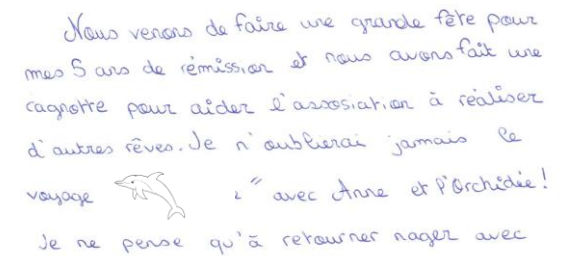 Nous venons de faire une grande fête pour
mes 5 ans de rémission et nous avons fait une
cagnotte pour aider l'assosiation à réaliser
d'autres rêves. Je n'oublierai jamais le
voyage " avec Anne et l'Orchidée!
Je ne pense qu'à retourner nager avec